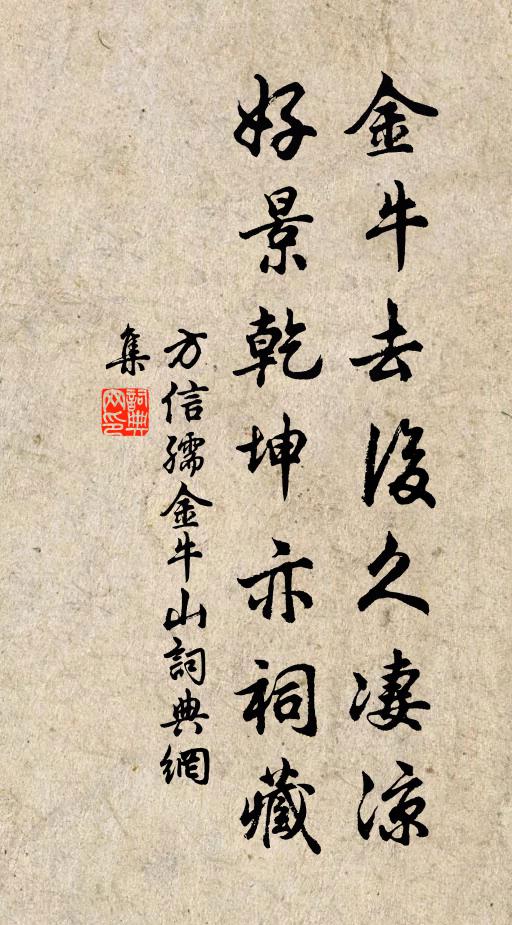 金牛去後久凄涼
好景乾坤亦祠藏
方信孺金牛山詞典網
集
詞典網印